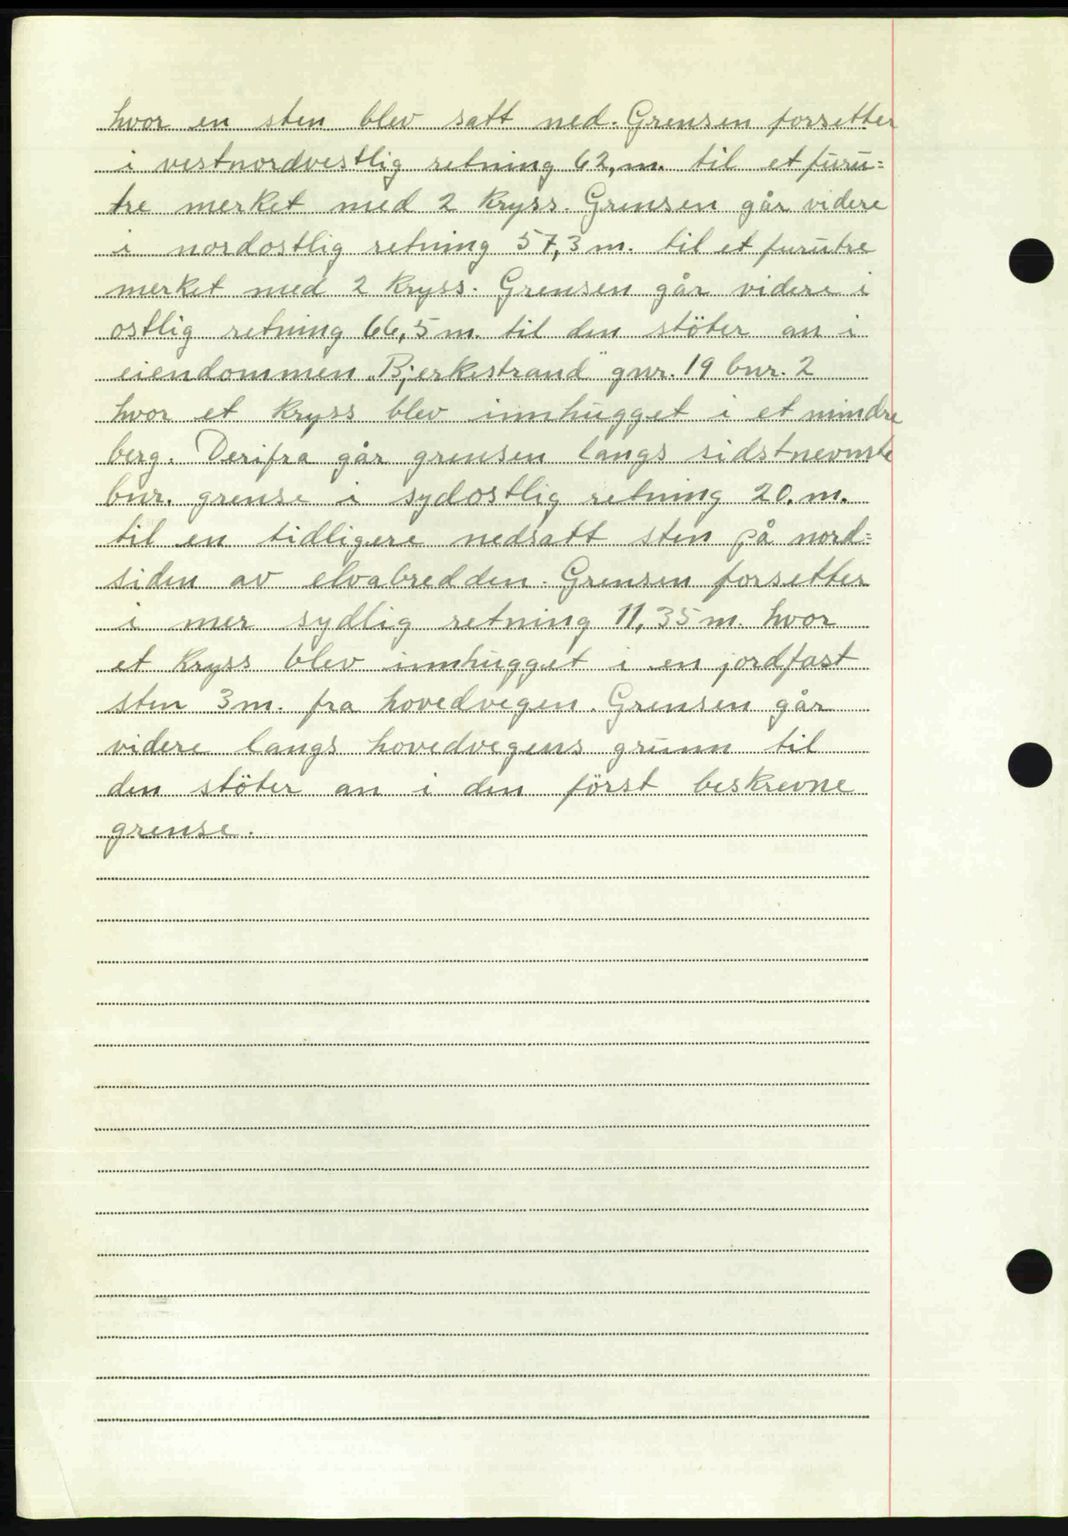 hvor en sten blev satt ned. Grensen forsetter
i vestnordvestlig retning 62,m. til et furu=
tre merket med 2 kryss. Grensen går videre
i nordostlig retning 57,3 m. til et furutre
merket med 2 kryss. Grensen går videre i
ostlig retning 66,5 m. til den stöter an i
eiendommen „Bjerkestrand" gnr. 19 bnr. 2
hvor et kryss blev innhugget i et mindre
berg. Derifra går grensen langs sidstnevnte
bnr. grense i sydostlig retning 20. m.
til en tidligere nedsatt sten på nord=
siden av elvabredden. Grensen forsetter
i mer sydlig retning 11,35 m. hvor
et kryss blev innhugget i en jordfast
sten 3 m. fra hovedvegen. Grensen går
videre langs hovedvegens grunn til
den stöter an i den först beskrevne
grense.